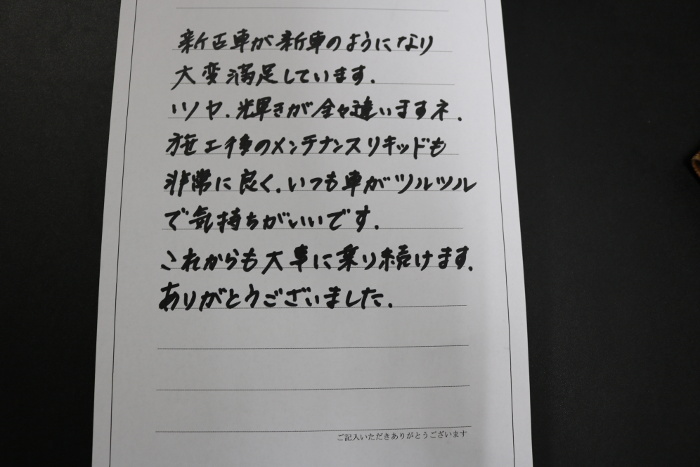 新正車が新車のようになり
大変満足しています.
ツヤ.輝きが全々違いますネ.
施工後のメンテナンスリキッドも
非常に良く.いつも車がツルツル
で気持ちがいいです.
これからも大車に乗り続けます.
ありがとうございました.
ご記入いただきありがとうございます